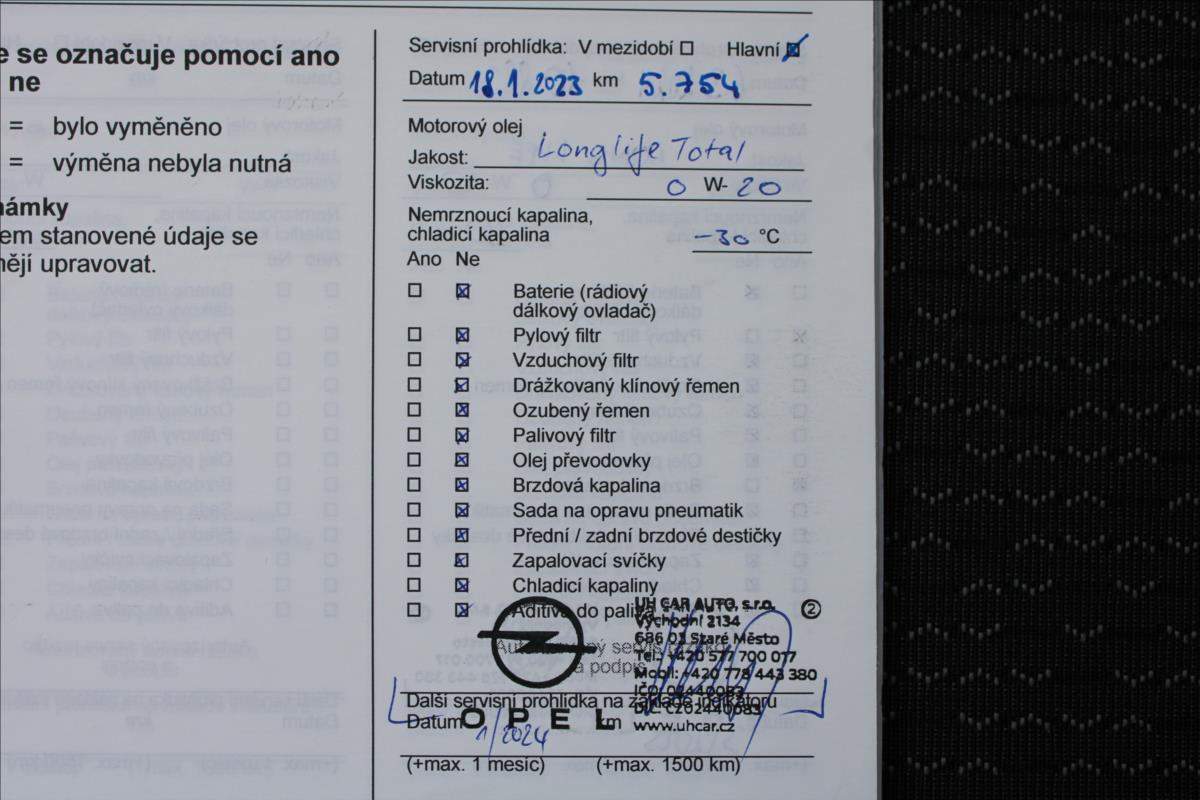 se označuje pomocí ano
ne
= bylo vyměněno
= výměna nebyla nutná
námky
em stanovené údaje se
nějí upravovat.
Servisní prohlídka: V mezidobí Hlavní
Datum 18.1.2023 km 5.754
Motorový olej
Jakost: Longlife Total
Viskozita: 0 W- 20
Nemrznoucí kapalina,
chladicí kapalina -30 °C
Ano Ne
Baterie (rádiový
dálkový ovladač)
Pylový filtr
Vzduchový filtr
Drážkovaný klínový řemen
Ozubený řemen
Palivový filtr
Olej převodovky
Brzdová kapalina
Sada na opravu pneumatik
Přední / zadní brzdové destičky
Zapalovací svíčky
Chladicí kapaliny
Aditiva do paliva
2
UH CAR AUTO, s.r.o.
Východní 2134
686 03 Staré Město
Tel.: +420 577 700 017
Mobil: +420 778 443 380
IČO: 02440083
DIČ: CZ02440083
www.uhcar.cz
servis
a podpis
Další servisní prohlídka na základě indikátoru
Datum 1/2024 km
OPEL
(+max. 1 měsíc) (+max. 1500 km)